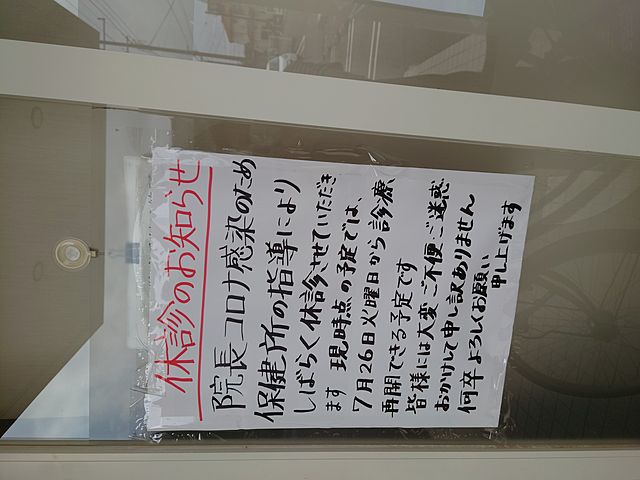 休診のお知らせ
院長コロナ感染のため
保健所の指導により
しばらく休診させていただき
ます 現時点の予定では、
7月26日火曜日から診療
再開できる予定です
皆様には大変ご不便ご迷惑
おかけして申し訳ありません
何卒よろしくお願い
申し上げます